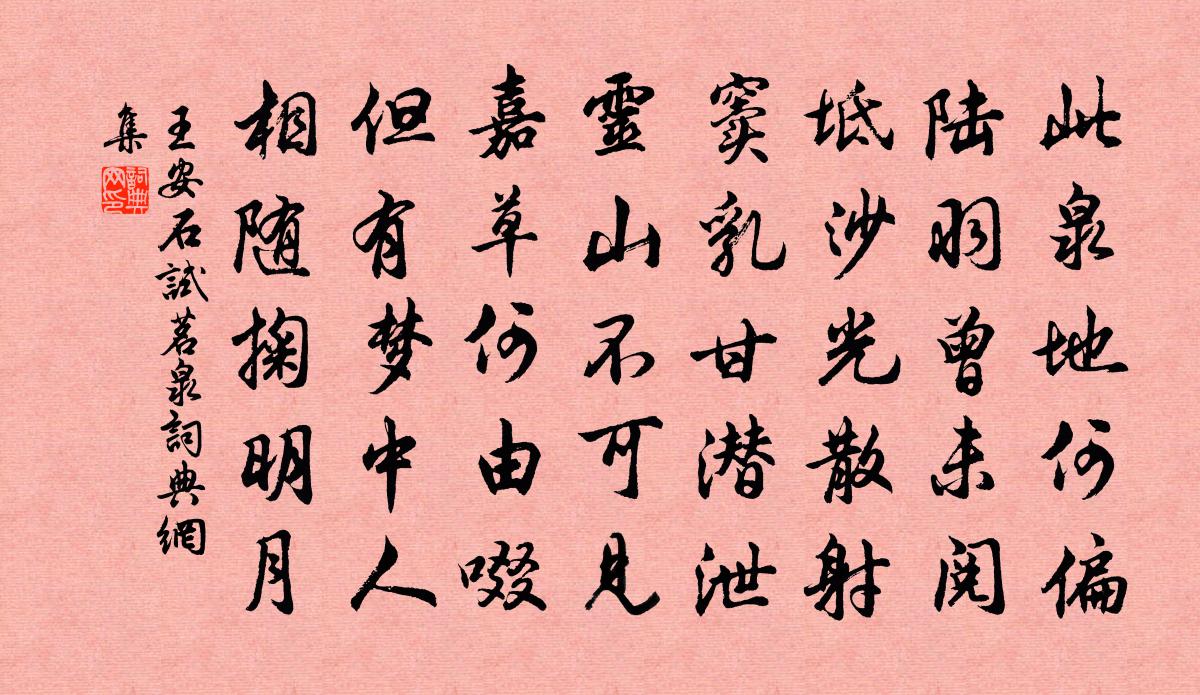 此泉地何偏
陆羽曾未阅
坻沙光散射
窦乳甘潜泄
靈山不可见
嘉草何由啜
但有梦中人
相随掬明月
王安石試茗泉詞典網
集
詞典
网印